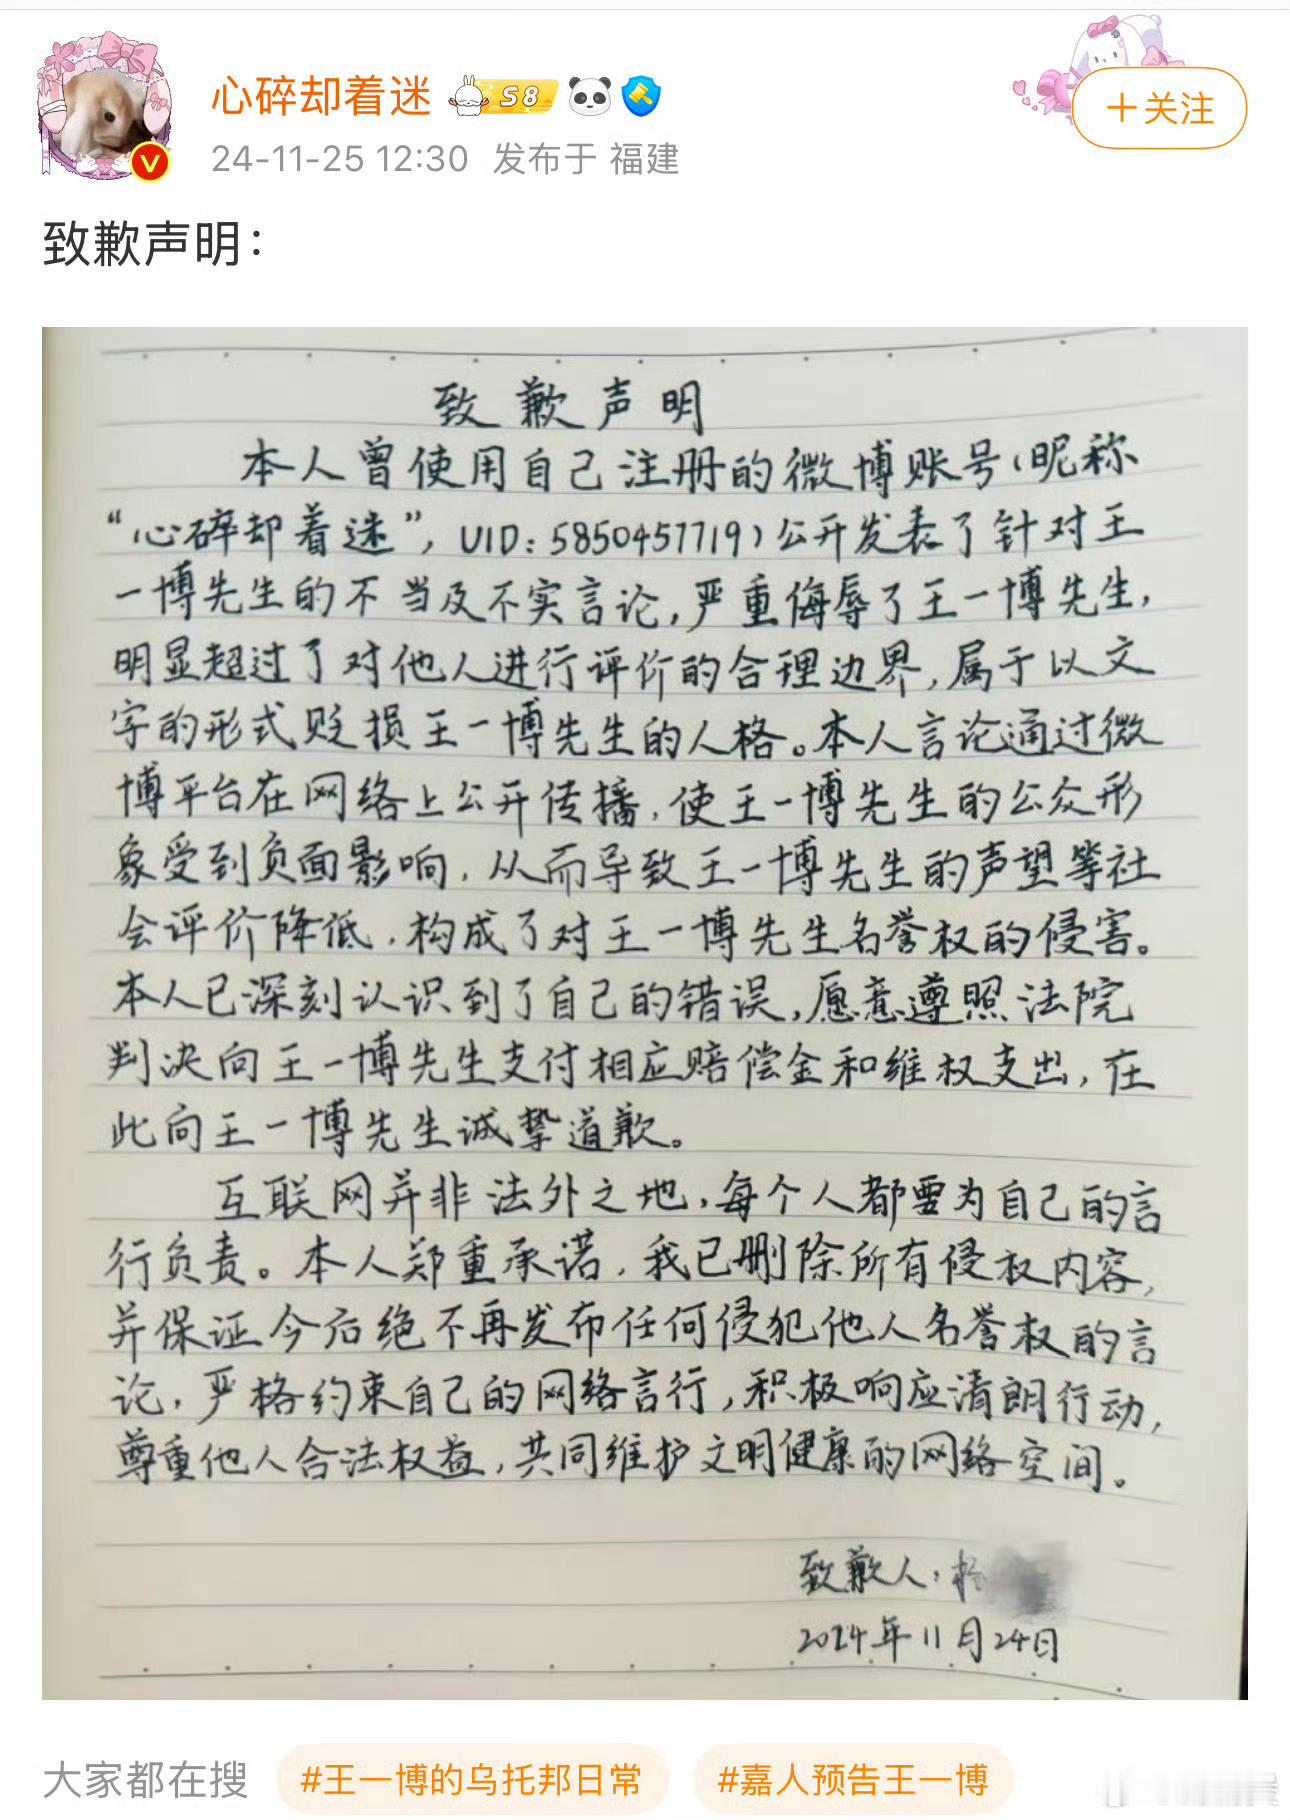 心碎却着迷 S8
+关注
24-11-25 12:30 发布于 福建
致歉声明：
致歉声明
本人曾使用自己注册的微博账号(昵称
“心碎却着迷”，UID：5850457719)公开发表了针对王
一博先生的不当及不实言论，严重侮辱了王一博先生，
明显超过了对他人进行评价的合理边界，属于以文
字的形式贬损王一博先生的人格。本人言论通过微
博平台在网络上公开传播，使王一博先生的公众形
象受到负面影响，从而导致王一博先生的声望等社
会评价降低，构成了对王一博先生名誉权的侵害。
本人已深刻认识到了自己的错误，愿意遵照法院
判决向王一博先生支付相应赔偿金和维权支出，在
此向王一博先生诚挚道歉。
互联网并非法外之地，每个人都要为自己的言
行负责。本人郑重承诺，我已删除所有侵权内容，
并保证今后绝不再发布任何侵犯他人名誉权的言
论，严格约束自己的网络言行，积极响应清朗行动，
尊重他人合法权益，共同维护文明健康的网络空间。
致歉人：杨
2024年11月24日
大家都在搜 #王一博的乌托邦日常 #嘉人预告王一博